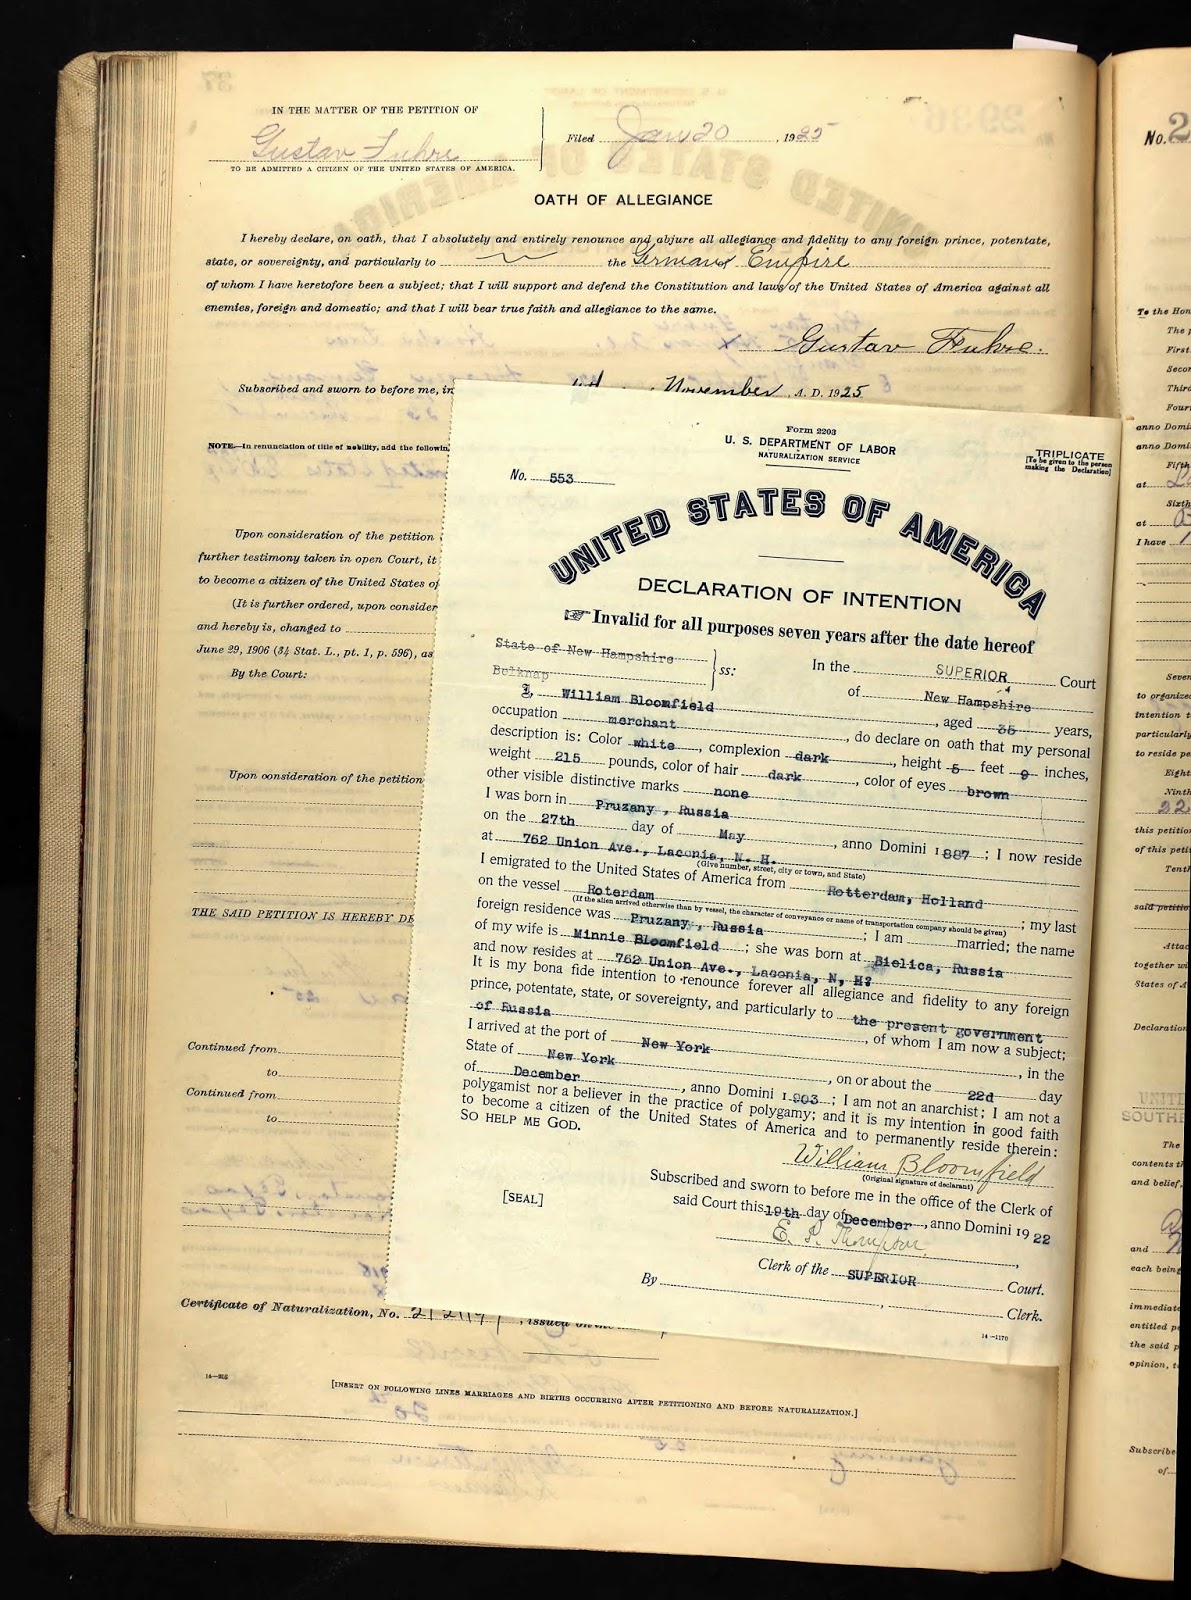 IN THE MATTER OF THE PETITION OF
Gustav Fuhre
TO BE ADMITTED A CITIZEN OF THE UNITED STATES OF AMERICA.
Filed Jan 20, 1925
OATH OF ALLEGIANCE
I hereby declare, on oath, that I absolutely and entirely renounce and abjure all allegiance and fidelity to any foreign prince, potentate,
state, or sovereignty, and particularly to the German Empire
of whom I have heretofore been a subject; that I will support and defend the Constitution and laws of the United States of America against all
enemies, foreign and domestic; and that I will bear true faith and allegiance to the same.
x Gustav Fuhre.
Subscribed and sworn to before me, in November, A. D. 1925
NOTE.—In renunciation of title of nobility, add the followin
Upon consideration of the petition
further testimony taken in open Court, it
to become a citizen of the United States of
(It is further ordered, upon consider
and hereby is, changed to
June 29, 1906 (34 Stat. L., pt. 1, p. 596), as
By the Court:
Upon consideration of the petition
THE SAID PETITION IS HEREBY DE
Continued from
to
Continued from
to
Certificate of Naturalization, No. , issued on the
14—936
[INSERT ON FOLLOWING LINES MARRIAGES AND BIRTHS OCCURRING AFTER PETITIONING AND BEFORE NATURALIZATION.]
Form 2203
U. S. DEPARTMENT OF LABOR
NATURALIZATION SERVICE
TRIPLICATE
[To be given to the person
making the Declaration]
No. 553
UNITED STATES OF AMERICA
DECLARATION OF INTENTION
☞ Invalid for all purposes seven years after the date hereof
State of New Hampshire
Belknap
ss:
In the SUPERIOR Court
of New Hampshire
I, William Bloomfield, aged 35 years,
occupation merchant, do declare on oath that my personal
description is: Color white, complexion dark, height 5 feet 9 inches,
weight 215 pounds, color of hair dark, color of eyes brown
other visible distinctive marks none
I was born in Pruzany, Russia
on the 27th day of May, anno Domini 1887; I now reside
at 762 Union Ave., Laconia, N. H.
(Give number, street, city or town, and State)
I emigrated to the United States of America from Rotterdam, Holland
on the vessel Roterdam; my last
(If the alien arrived otherwise than by vessel, the character of conveyance or name of transportation company should be given)
foreign residence was Pruzany, Russia; I am married; the name
of my wife is Minnie Bloomfield; she was born at Bielica, Russia
and now resides at 762 Union Ave., Laconia, N, H?
It is my bona fide intention to renounce forever all allegiance and fidelity to any foreign
prince, potentate, state, or sovereignty, and particularly to the present government
of Russia, of whom I am now a subject;
I arrived at the port of New York, in the
State of New York, on or about the 22d day
of December, anno Domini 1903; I am not an anarchist; I am not a
polygamist nor a believer in the practice of polygamy; and it is my intention in good faith
to become a citizen of the United States of America and to permanently reside therein:
SO HELP ME GOD.
William Bloomfield
(Original signature of declarant)
Subscribed and sworn to before me in the office of the Clerk of
said Court this 19th day of December, anno Domini 1922
[SEAL]
E. P. Thompson,
Clerk of the SUPERIOR Court.
By , Clerk.
14—1170
No. 2
To the Hon
The p
First.
Secon
Third
Fourt
anno Domi
anno Domi
Fifth
at
Sixth
at
I have
Seven
to organize
intention t
particularly
to reside pe
Eight
Ninth
22
this petitio
of this petit
Tenth
said petitio
Attac
together wi
States of A
Declaration
UNITE
SOUTHE
The
contents th
and belief,
and
each being
immediate
entitled p
the said p
opinion, t
Subscribe
of